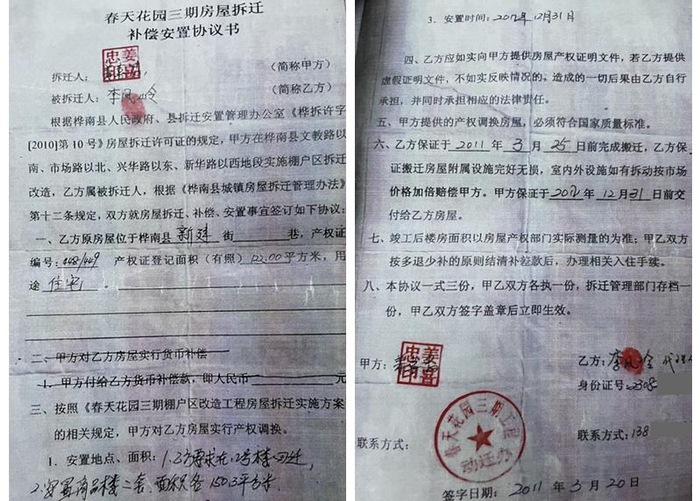 春天花园三期房屋拆迁
补偿安置协议书
拆迁人：
（简称甲方）
被拆迁人：李凤
（简称乙方）
根据桦南县人民政府、县拆迁安置管理办公室《桦拆许字
[2010]第10号》房屋拆迁许可证的规定，甲方在桦南县文教路以
南、市场路以北、兴华路以东、新华路以西地段实施棚户区拆迁
改造，乙方属被拆迁人，根据《桦南县城镇房屋拆迁管理办法》
第十二条规定，双方就房屋拆迁、补偿、安置事宜签订如下协议：
一、乙方原房屋位于桦南县 新建 街 巷，产权证
编号：448/449 产权证登记面积（有照）122.00平方米，用
途 住宅
二、甲方对乙方房屋实行货币补偿
1、甲方付给乙方货币补偿款，即人民币 元
三、按照《春天花园三期棚户区改造工程房屋拆迁实施方案
的相关规定，甲方对乙方房屋实行产权调换。
1、安置地点、面积：
2.安置商品楼二套，面积各150.3平方米
3、安置时间：2012年12月31日
四、乙方应如实向甲方提供房屋产权证明文件，若乙方提供
虚假证明文件，不如实反映情况的。造成的一切后果由乙方自行
承担，并同时承担相应的法律责任。
五、甲方提供的产权调换房屋，必须符合国家质量标准。
六、乙方保证于 2011 年 3 月 25 日前完成搬迁，乙方保
证搬迁房屋附属设施完好无损，室内外设施如有拆动按市场
价格加倍赔偿甲方。甲方保证于2012 年 12月 31 日前交
付给乙方房屋。
七、竣工后楼房面积以房屋产权部门实际测量的为准；甲乙双方
按多退少补的原则结清补偿款后，办理相关入住手续。
八、本协议一式三份，甲乙双方各执一份，拆迁管理部门存档一
份，甲乙双方签字盖章后立即生效。
甲方：
姜喜忠印
乙方：李凤 代理人
身份证号：2308
春天花园三期工程
动迁办
联系方式：
联系方式：138
签字日期： 2011 年 3 月 20 日